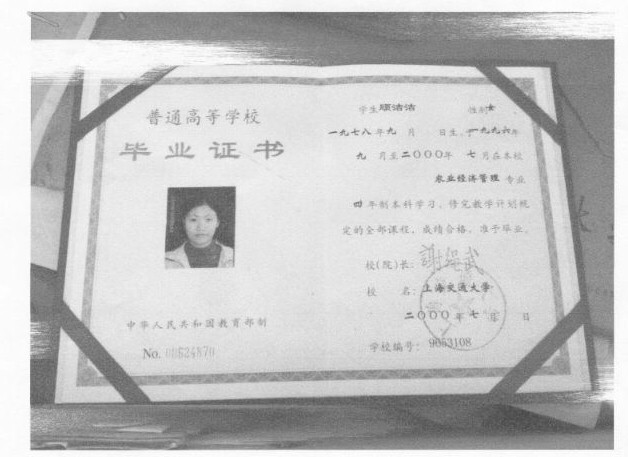 普通高等学校
毕业证书
中华人民共和国教育部制
No. 00524870
学生顾洁洁 性别女
一九七八年九月 日生，于一九九六年
九月至二〇〇〇年七月在本校
农业经济管理专业
四年制本科学习，修完教学计划规
定的全部课程，成绩合格，准予毕业。
校(院)长：謝绳武
校 名：上海交通大学
二〇〇〇年七月 日
学校编号：9653108